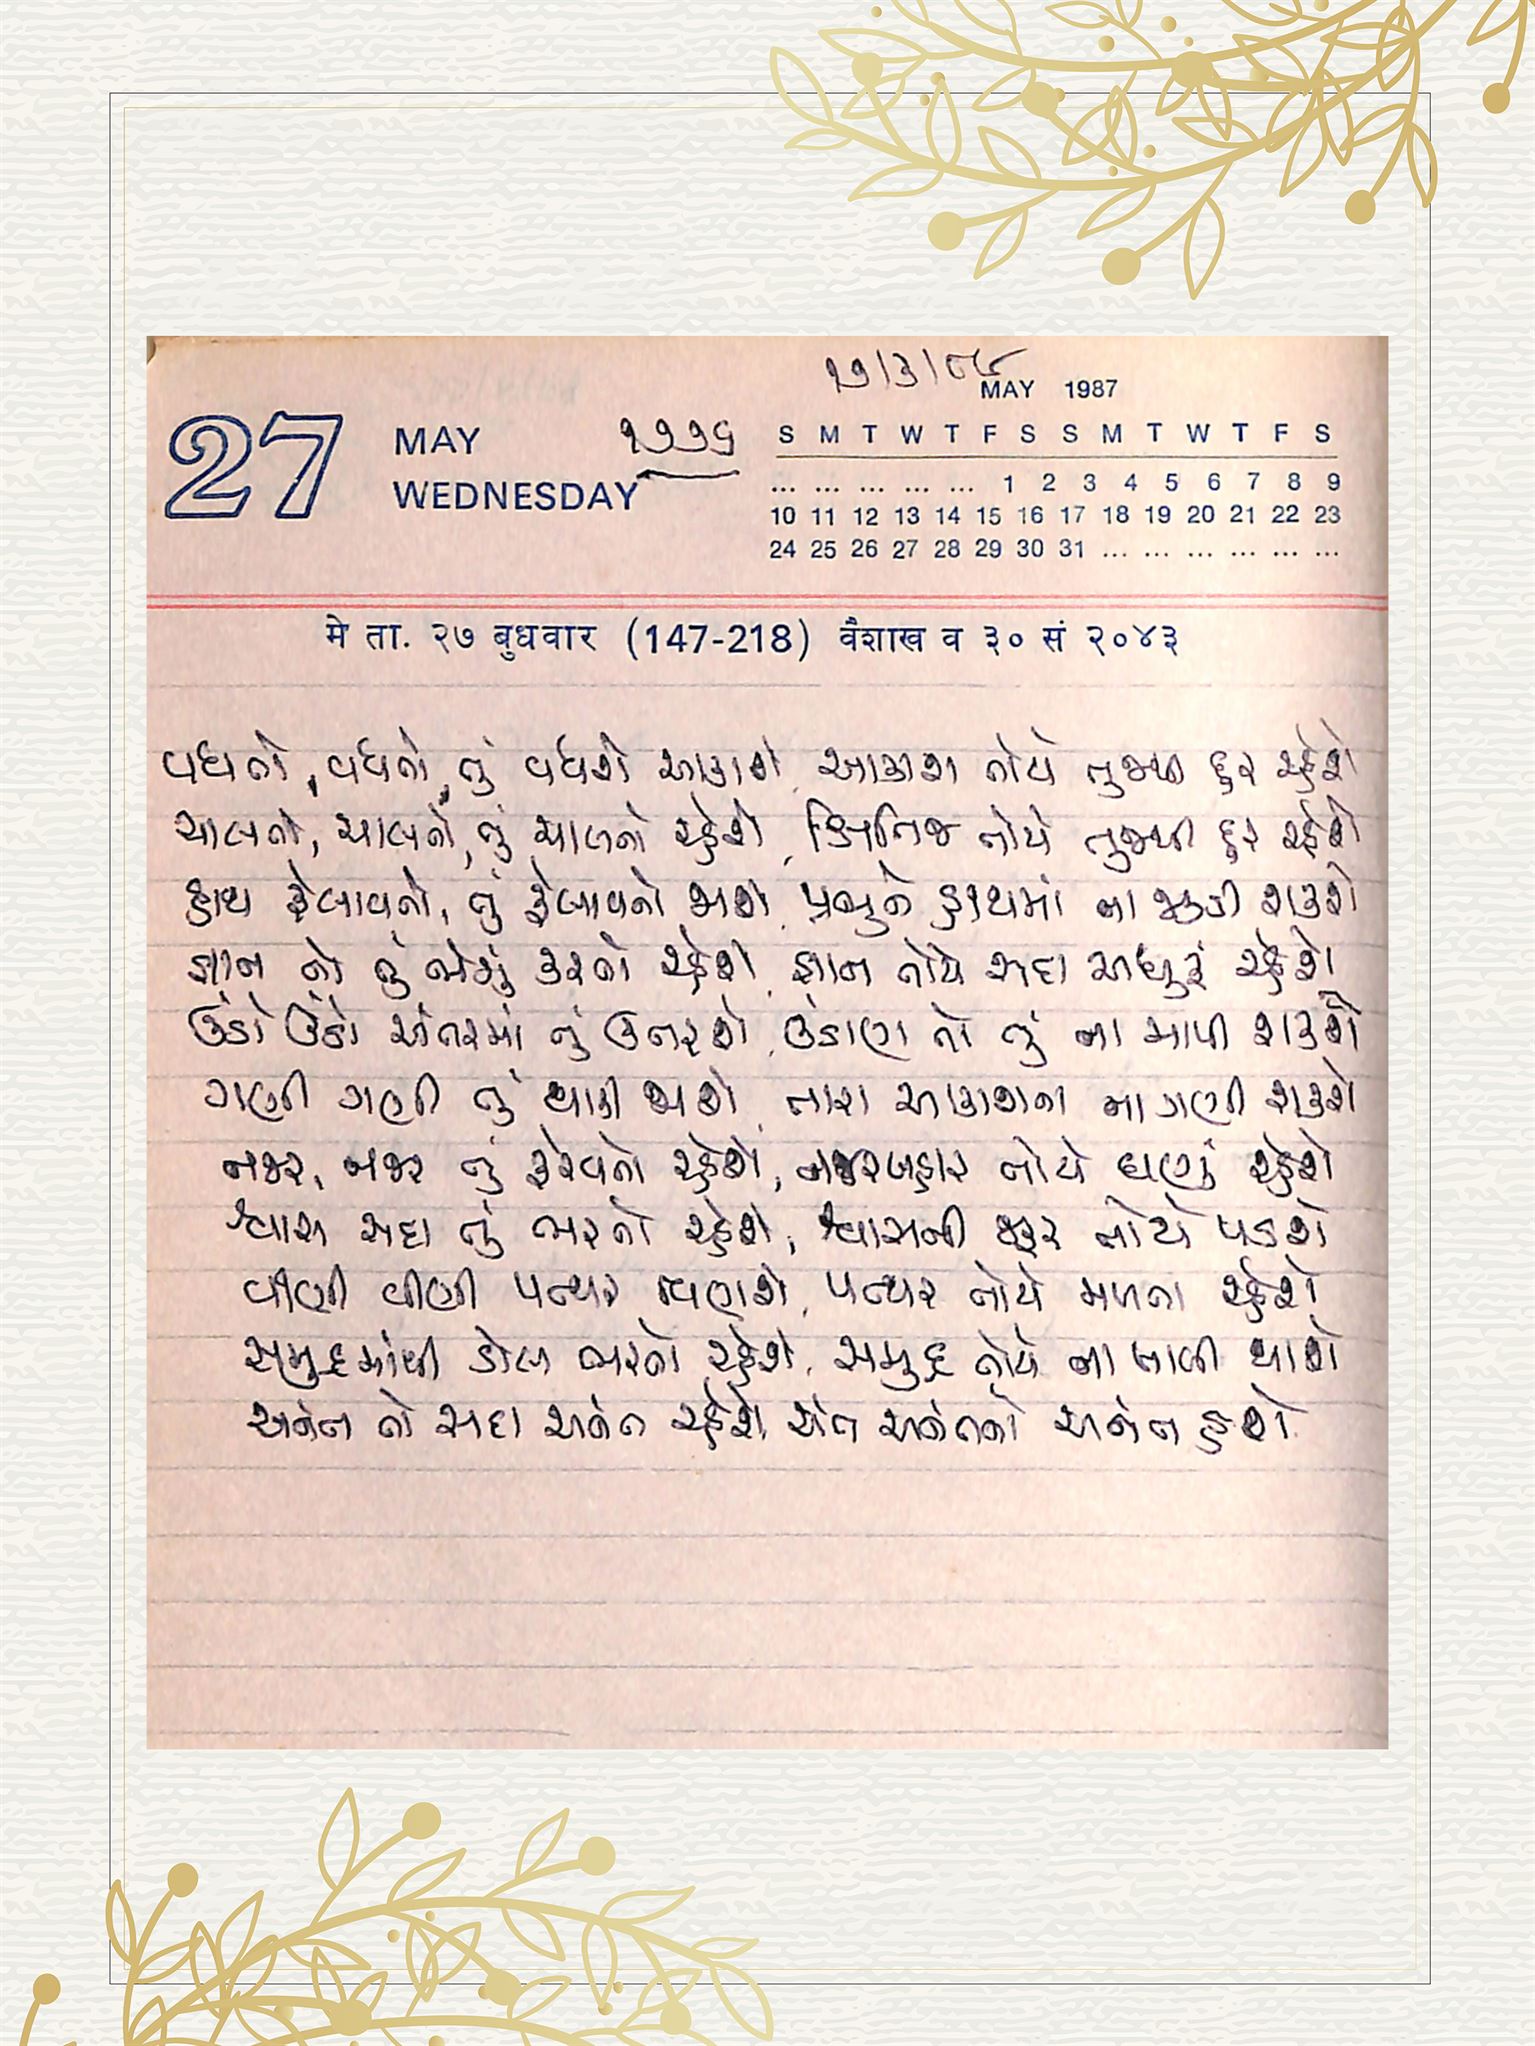 ૧૭/૩/૮૮
MAY 1987
27 MAY ૧૨૨૬
WEDNESDAY
S M T W T F S S M T W T F S
... ... ... ... ... 1 2 3 4 5 6 7 8 9
10 11 12 13 14 15 16 17 18 19 20 21 22 23
24 25 26 27 28 29 30 31 ... ... ... ... ... ...
मे ता. २७ बुधवार (147-218) वैशाख व ३० सं २०४३
વધતો, વધતો, તું વધશે આકાશે, આકાશ તોયે તુજથી દુર રહેશે
ચાલતો, ચાલતો, તું ચાલતો રહેશે, ક્ષિતિજ તોયે તુજથી દુર રહેશે
હાથ ફેલાવતો, તું ફેલાવતો જાશે, પ્રભુને હાથમાં ના જકડી શકશે
જ્ઞાન તો તું ભેગું કરતો રહેશે, જ્ઞાન તોયે સદા અધુરું રહેશે
ઉંડો ઉંડો અંતરમાં તું ઉતરશે, ઉંડાણ તો તું ના માપી શકશે
ગણી ગણી તું થાકી જાશે, તારા આકાશના ના ગણી શકશે
નજર, નજર તું ફેરવતો રહેશે, નજરબહાર તોયે ઘણું રહેશે
શ્વાસ સદા તું ભરતો રહેશે, શ્વાસની જરૂર તોયે પડશે
વીણી વીણી પત્થર વિણશે, પત્થર તોયે મળતા રહેશે
સમુદ્રમાંથી ડોલ ભરતો રહેશે, સમુદ્ર તોયે ના ખાલી થાશે
અનંત તો સદા અનંત રહેશે, અંત અનંતનો અનંત હશે